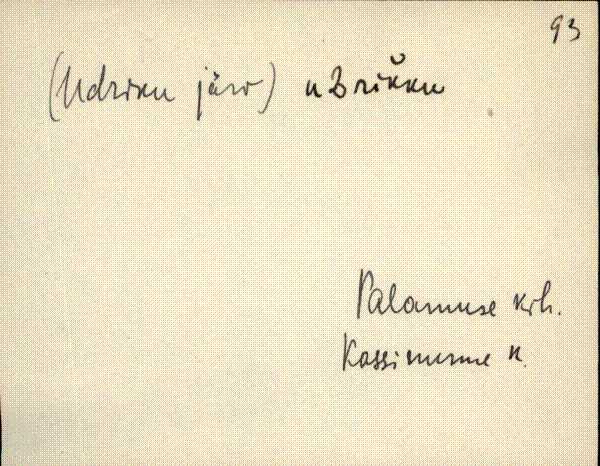 93
(Udriku järv) uDrik̆ku
Palamuse krh.
Kassinurme k.